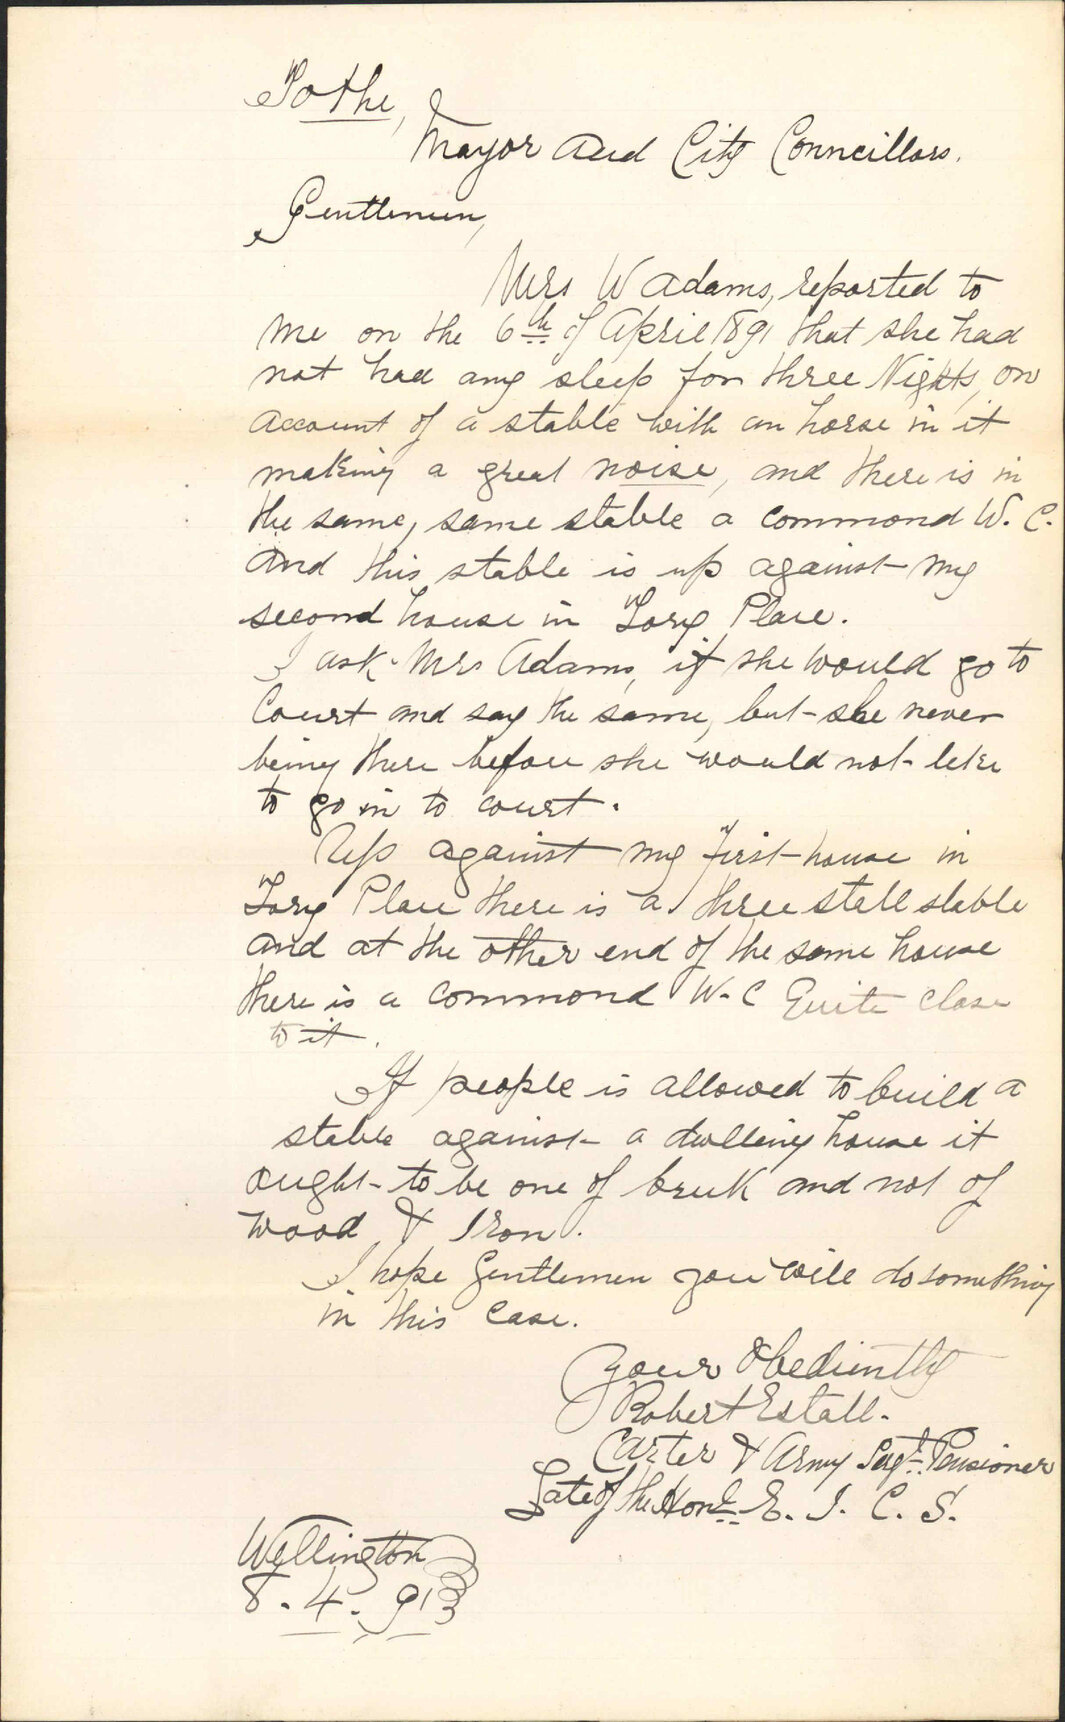 To the,
Mayor and City Councillors.
Gentlemen,
Mrs W Adams, reported to
me on the 6th of April 1891 that she had
not had any sleep for three Nights, on
account of a stable with an horse in it
making a great noise, and there is in
the same, same stable a commond W. C.
And this stable is up against my
second house in Tory Place.
I ask Mrs Adams, if she would go to
Court and say the same, but she never
being there before she would not like
to go in to court.
Up against my first house in
Tory Place there is a three stall stable
and at the other end of the same house
there is a commond W.C Quite close
to it.
If people is allowed to build a
stable against a dwlleing house it
ought to be one of brick and not of
wood & Iron.
I hope Gentlemen you will do something
in this case.
Your Obediently
Robert Estall.
Carter & Army Sergt. Pensioner
Late of the Honl. E. I. C. S.
Wellington
8. 4. 91